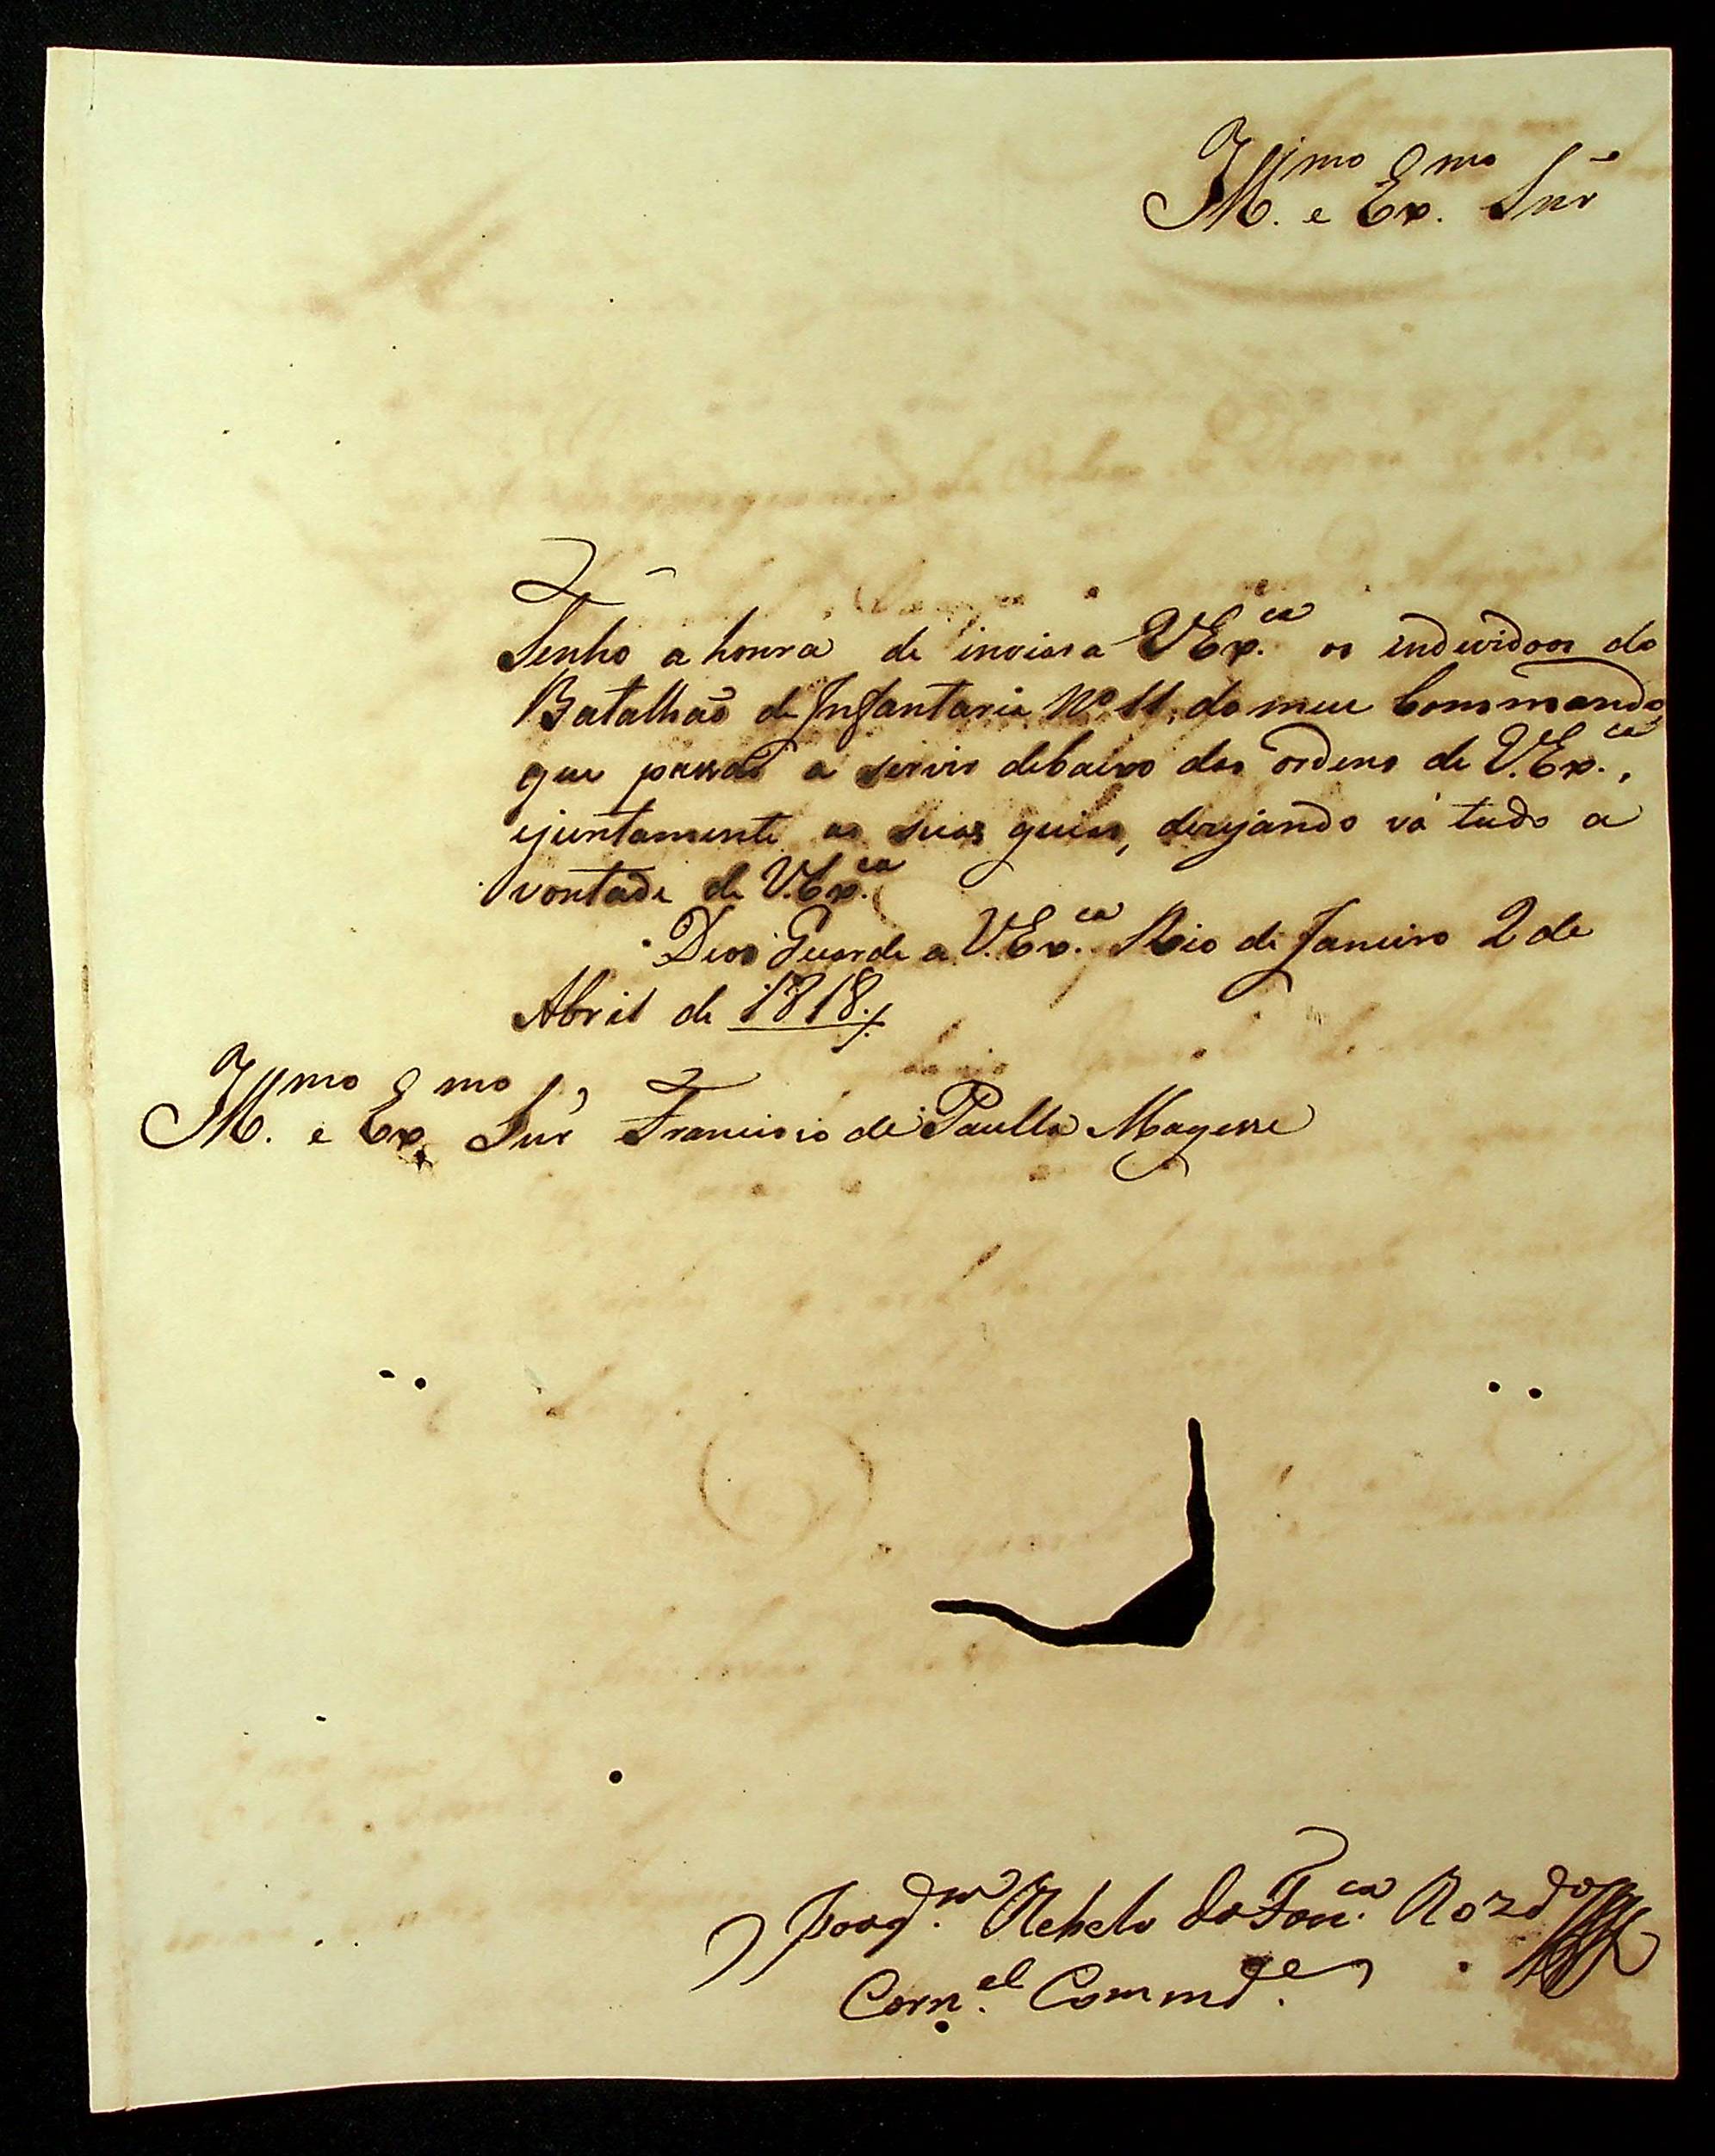 Ill.mo e Ex.mo Snr
Tenho a honra de inviar a VEx.ca os individos do
Batalhaõ de Infantaria Nº 11, do meu Commando,
que passaõ a servir debaixo das ordens de V.Ex.ca,
ejuntamente as suas guias, dezejando vá tudo a
vontade de V.Ex.ca
Deos Guarde a V.Ex.ca Rio de Janeiro 2 de
Abril de 1818.
Ill.mo e Ex.mo Snr Francisco de Paulla Magesse
Joaq.m Rebelo da Fon.ca
Corn.el Commd.e